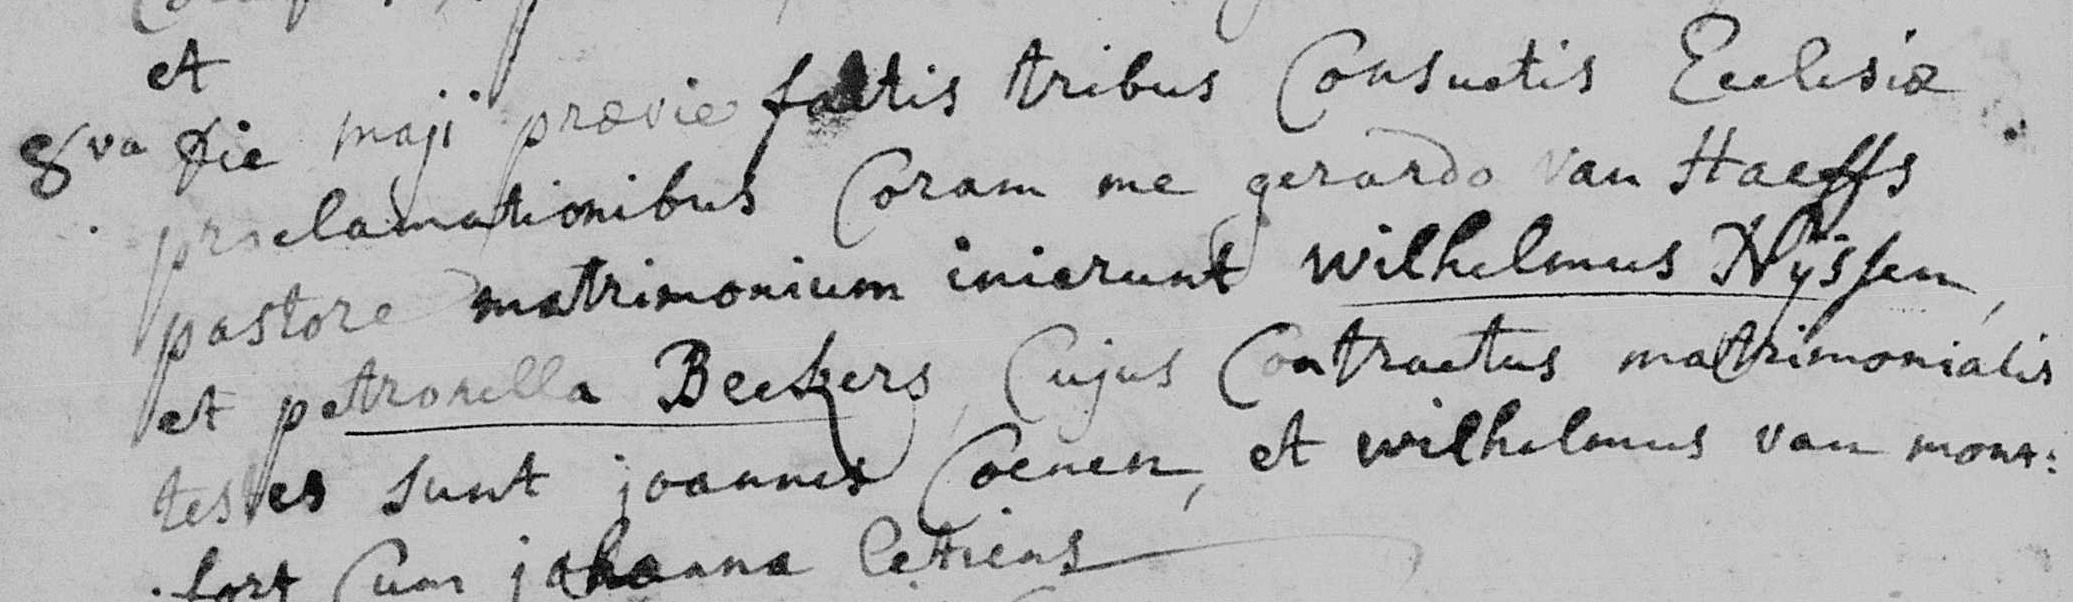 et
8va die maji prævie factis tribus Consuetis Ecclesiæ
proclamationibus Coram me gerardo van Haeffs
pastore matrimonium inierunt wilhelmus Nijssen,
et petronella Beckers, Cujus Contractus matrimonialis
testes sunt joannes Coenen, et wilhelmus van mont:
fort Cum johanna